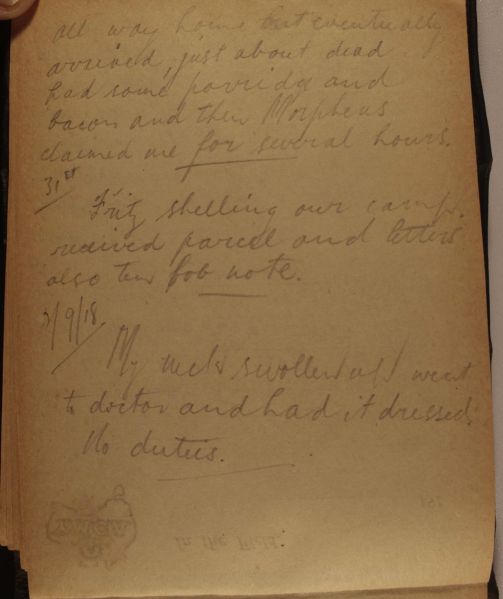 all way home but eventually
arrived, just about dead
had some porridge and
bacon and then Morpheus
claimed me for several hours.
31st
Fritz shelling our camp.
received parcel and letters
also ten bob note.
2/9/18
My neck swollen up went
to doctor and had it dressed.
No duties.
In the Field.
191